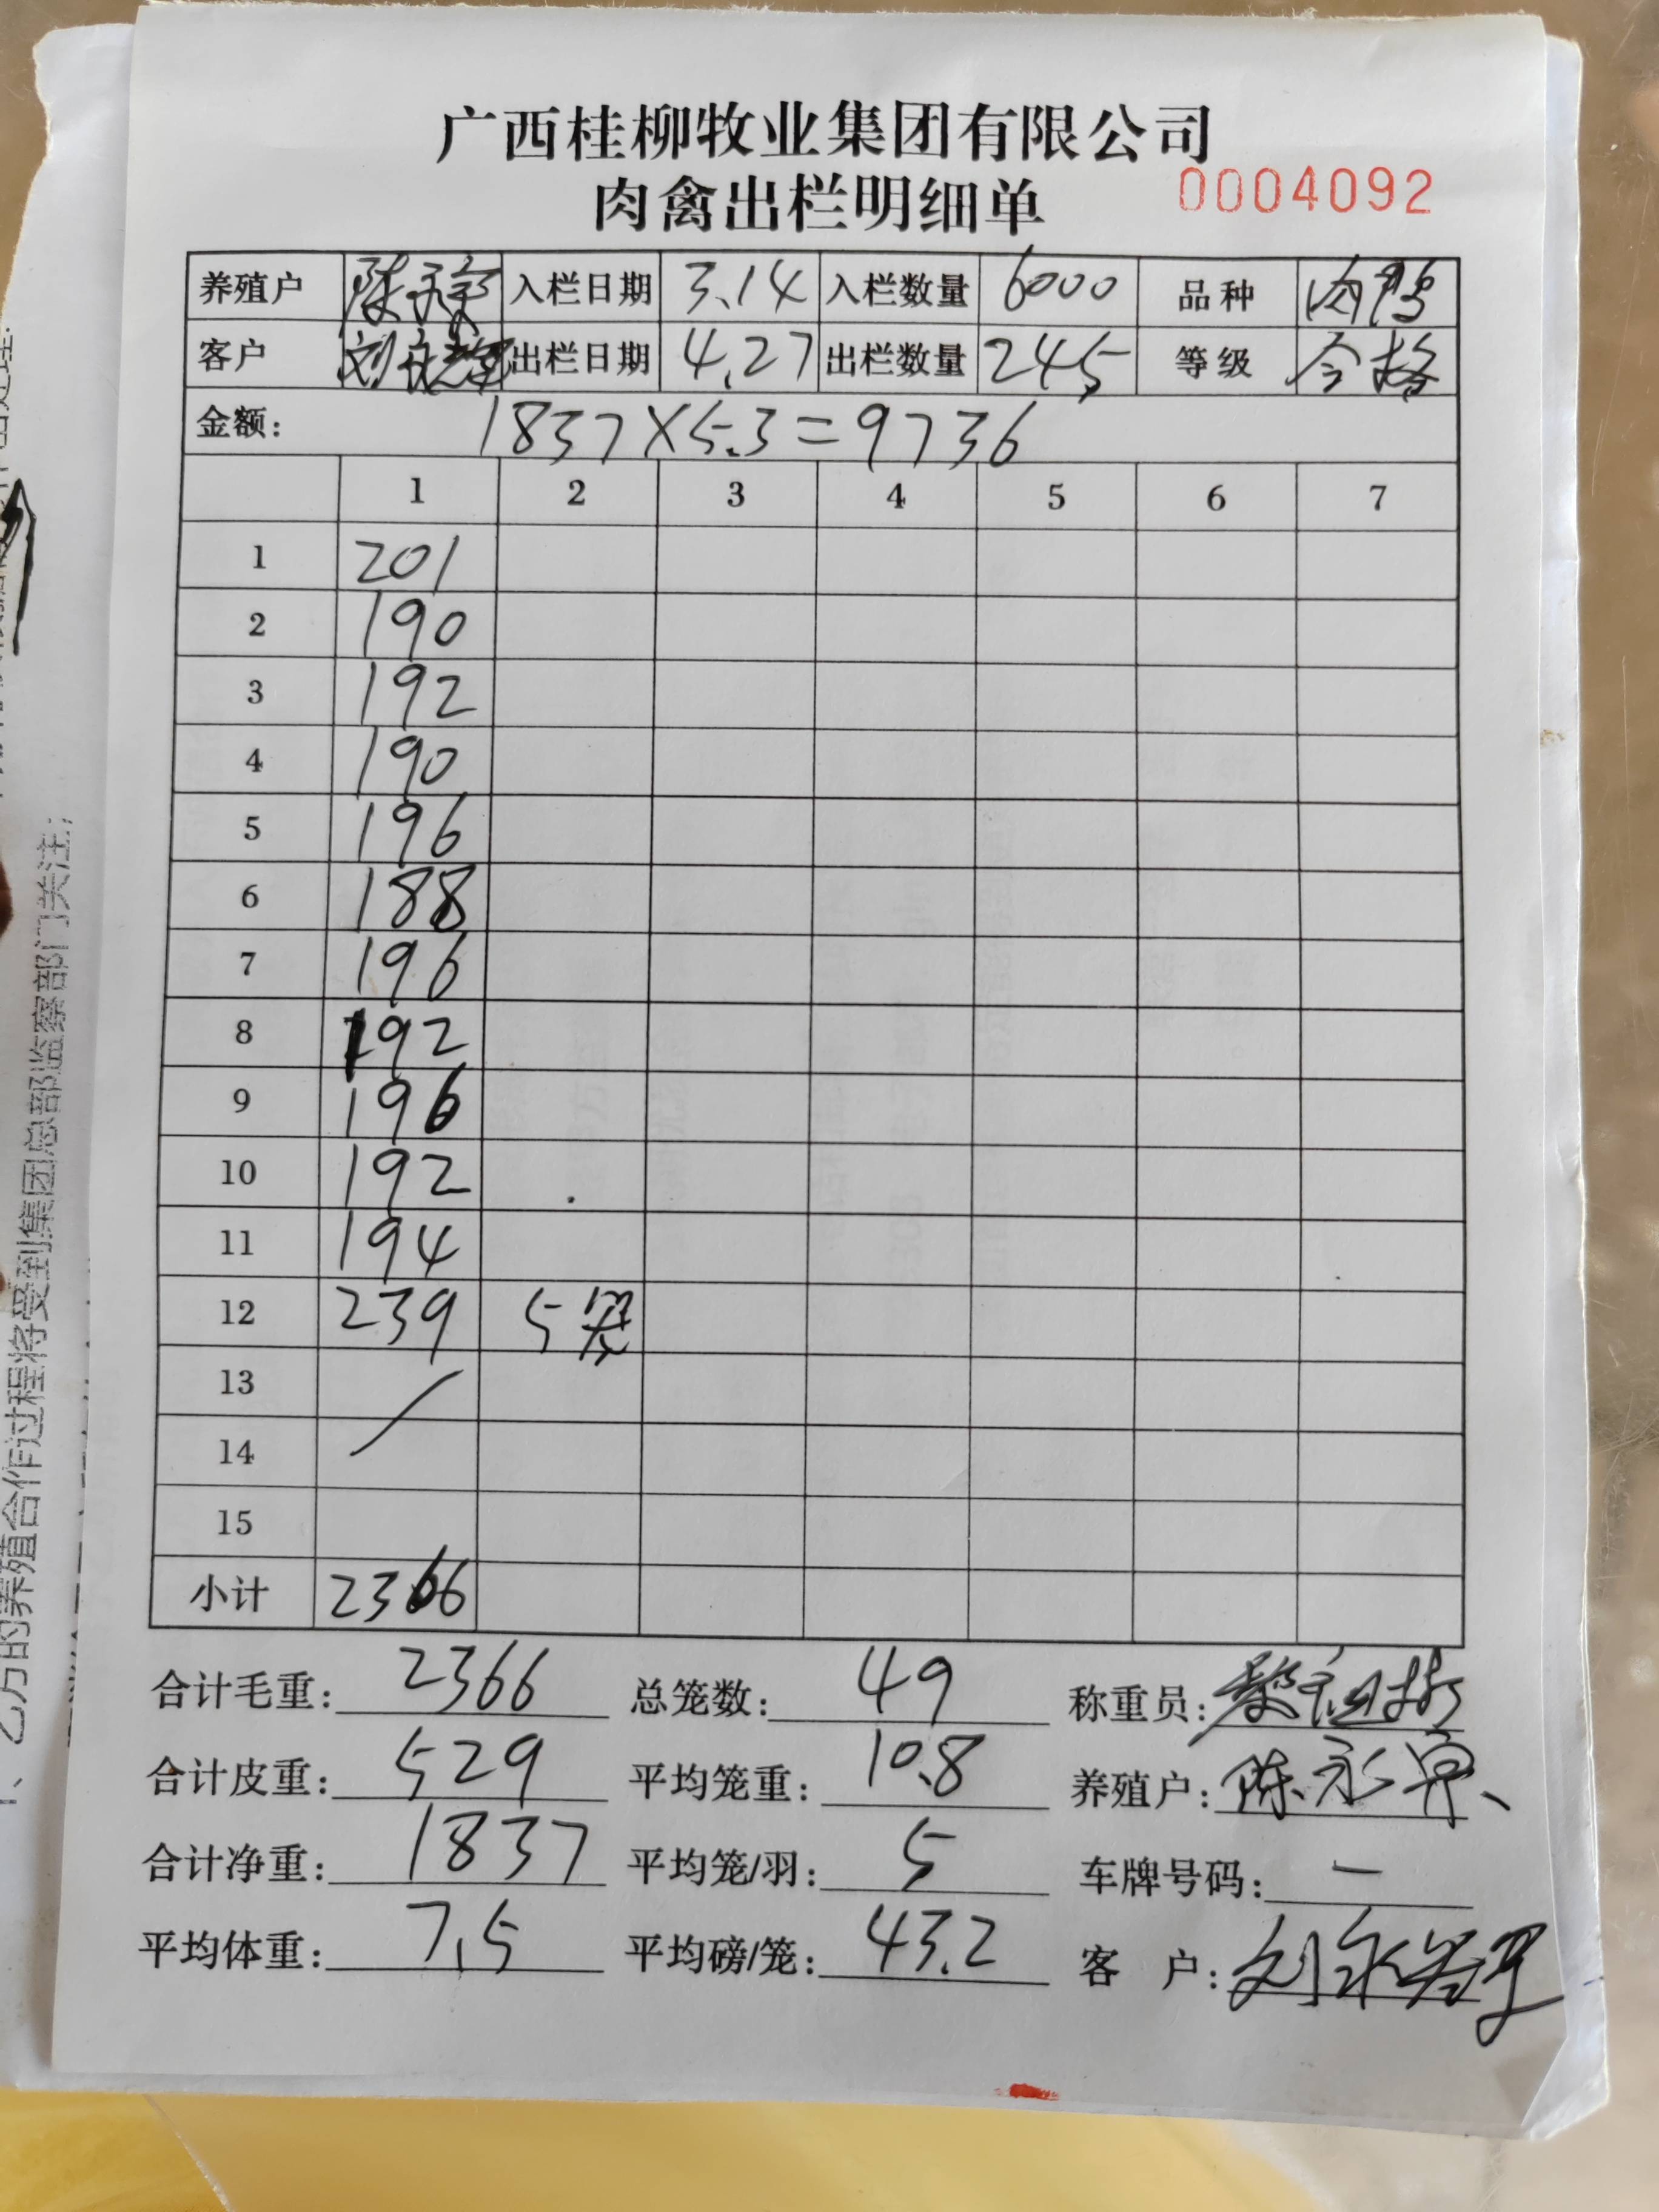 广西桂柳牧业集团有限公司
肉禽出栏明细单 0004092
养殖户 陈永 入栏日期 3.14 入栏数量 6000 品种 肉鸭
客户 刘 出栏日期 4.27 出栏数量 245 等级 合格
金额： 1837×5.3=9736
1 2 3 4 5 6 7
1 201
2 190
3 192
4 190
5 196
6 188
7 196
8 192
9 196
10 192
11 194
12 239 5笼
13
14
15
小计 2366
合计毛重： 2366 总笼数： 49 称重员：
合计皮重： 529 平均笼重： 10.8 养殖户： 陈永
合计净重： 1837 平均笼/羽： 5 车牌号码： —
平均体重： 7.5 平均磅/笼： 43.2 客 户： 刘永
乙方的养殖合作过程将受到集团总部监察部门关注；